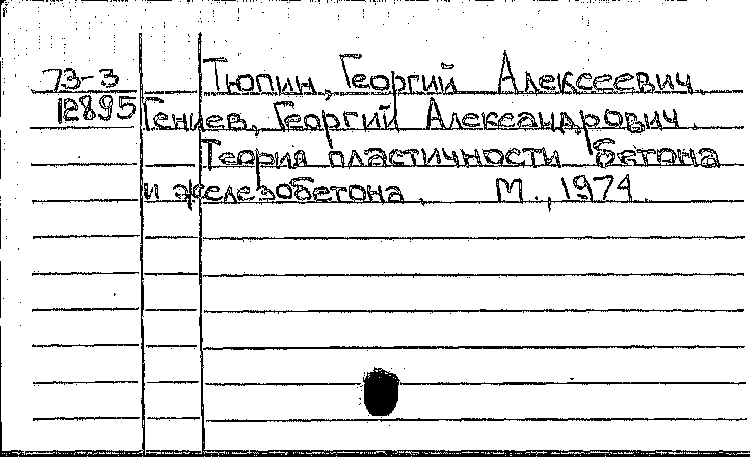 73-3 Тюпин, Георгий Алексеевич.
12895 Гениев, Георгий Александрович.
Теория пластичности бетона
и железобетона. М., 1974.